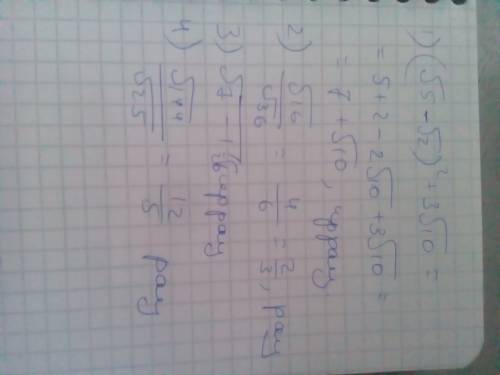 1) (√5 - √2)² + 3√10 =
= 5 + 2 - 2√10 + 3√10 =
= 7 + √10, иррац
2) √16/√36 = 4/6 = 2/3, рац
3) √7 - иррац
4) √144/√25 = 12/5 рац